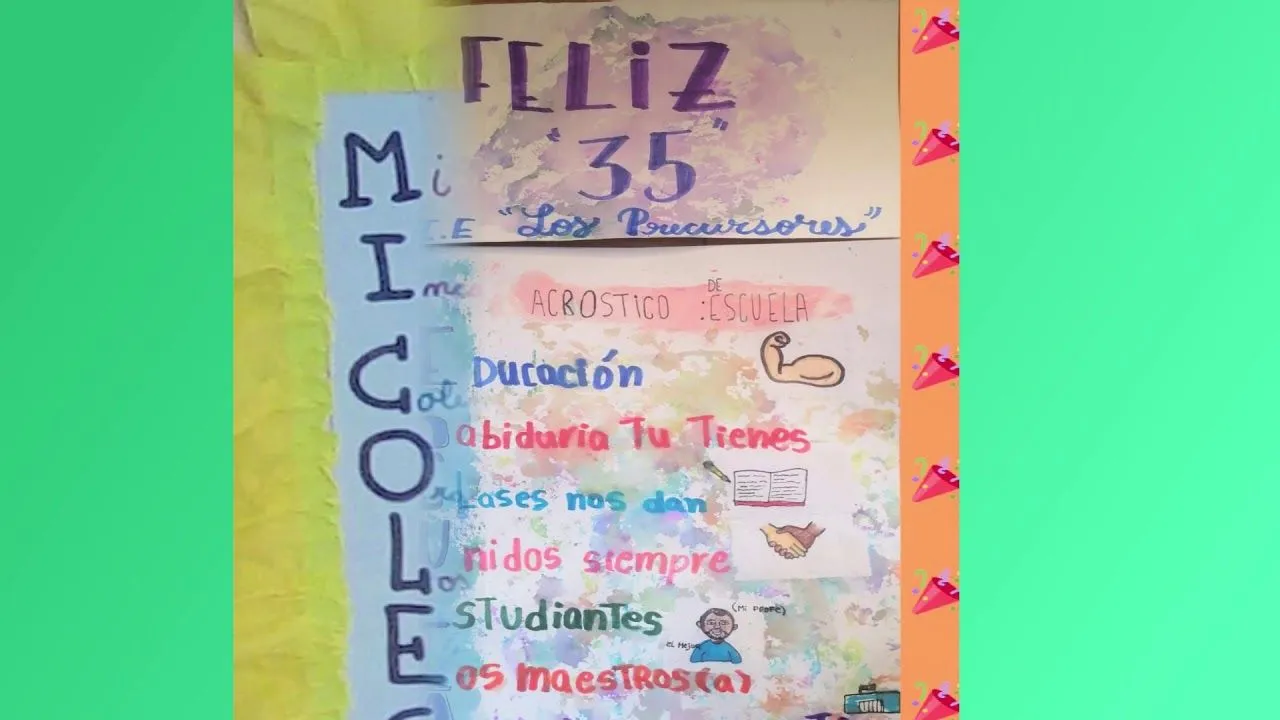 FELiZ
"35"
I.E "Los Precursores"
ACROSTICO DE :ESCUELA
Ducación
abiduria Tu Tienes
Lases nos dan
nidos siempre
STudianTes
(Mi PROFE)
EL MEJOR
os maesTRos(a)
M i
I
C
O
L os
E